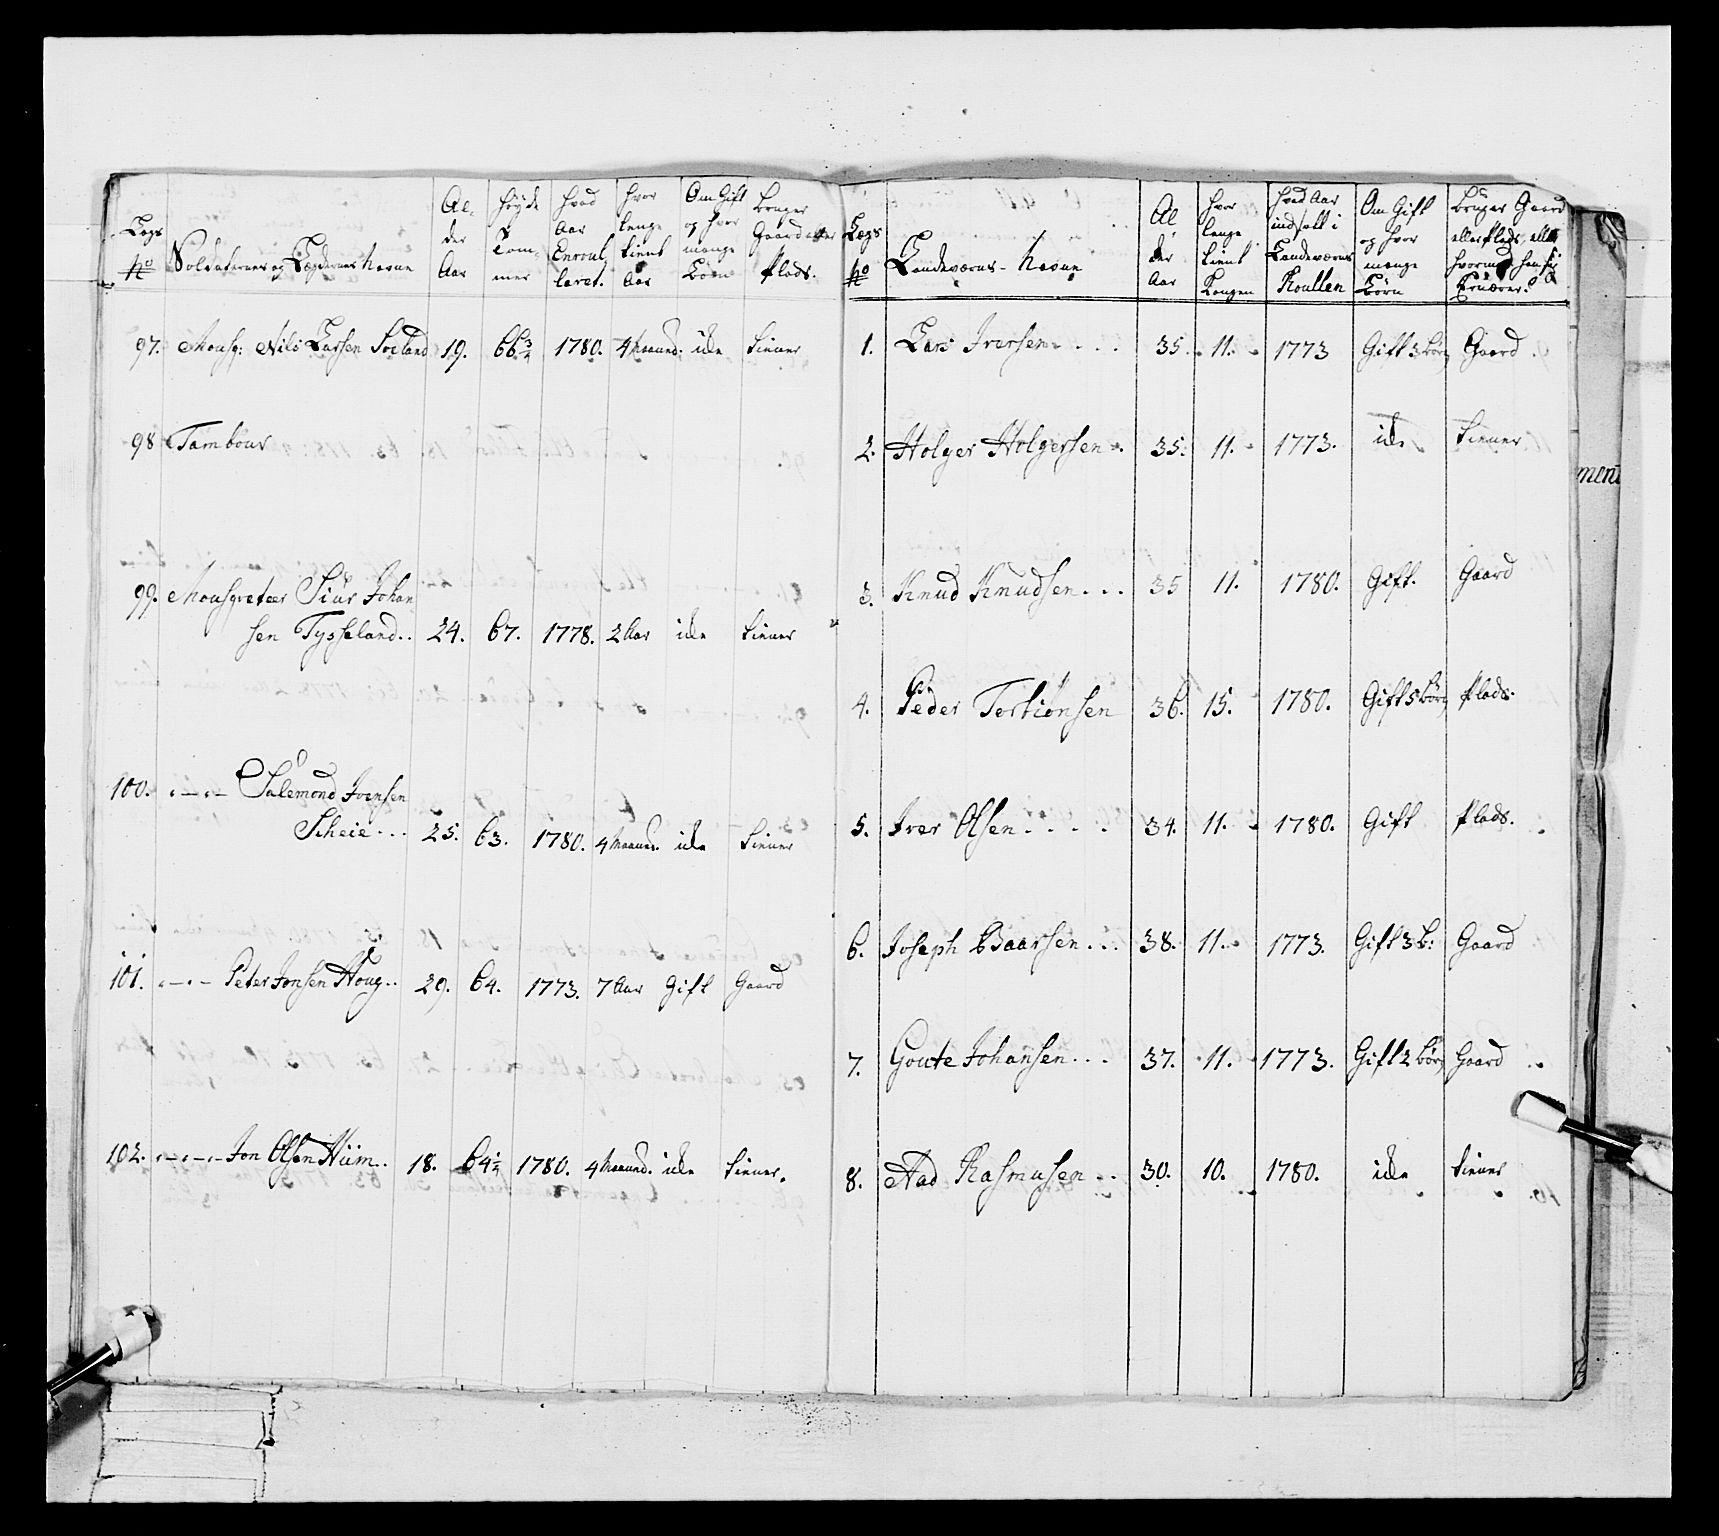 Lægs No
Soldaternes og Lægdernes Navne
Al-
der
Aar
Høyde
Tom-
mer
Hvad
Aar
Enroul-
leret.
Hvor
lenge
tient
Aar
Om Gift
og hvor
mange
Børn
Bruger
Gaard eller
Plads.
97. Mousq: Nils Larsen Soeland 19. 66 3/4 1780. 4 Maaned: icke tiener
98 Tambour
99. Mousqveteer Siur Johan
sen Tysseland.. 24. 67. 1778. 2 Aar icke tiener
100. Salemond Ivensen
Scheie... 25. 63. 1780. 4 Maaned. icke tiener
101. Peter Jonsen Houg.. 29. 64. 1773. 7 Aar Gift Gaard
102. Jon Olsen Hiim.. 18. 64 1/2 1780. 4 Maaned. icke tiener.
Lægs
No
Landeværns-Navne
Al
der
Aar
Hvor
lenge
tient
Kongen
Hvad Aar
indsatt i
Landeværns
Roullen
Om Gift
og hvor
mange
Børn
Bruger Gaard
eller Plads, eller
hvormed han sig
Ernærer.
1. Lars Iversen.... 35. 11. 1773 Gift 3 Børn Gaard
2. Holger Holgersen. 35. 11. 1773. icke tiener
3. Knud Knudsen... 35 11. 1780. Gift. Gaard
4. Peder Torkionsen 36. 15. 1780. Gift 5 Børn Plads.
5. Iver Olsen.... 34. 11. 1780. Gift Plads.
6. Joseph Baarsen... 38. 11. 1773. Gift 3 B: Gaard
7. Goute Johansen... 37. 11. 1773. Gift 2 Børn Gaard
8. Aad Rasmusen.. 30. 10. 1780. icke tiener
ment